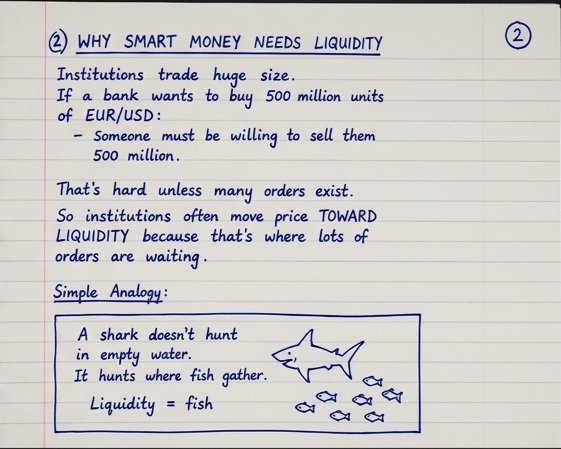 ② WHY SMART MONEY NEEDS LIQUIDITY
②
Institutions trade huge size.
If a bank wants to buy 500 million units
of EUR/USD:
– Someone must be willing to sell them
500 million.
That's hard unless many orders exist.
So institutions often move price TOWARD
LIQUIDITY because that's where lots of
orders are waiting.
Simple Analogy:
A shark doesn't hunt
in empty water.
It hunts where fish gather.
Liquidity = fish